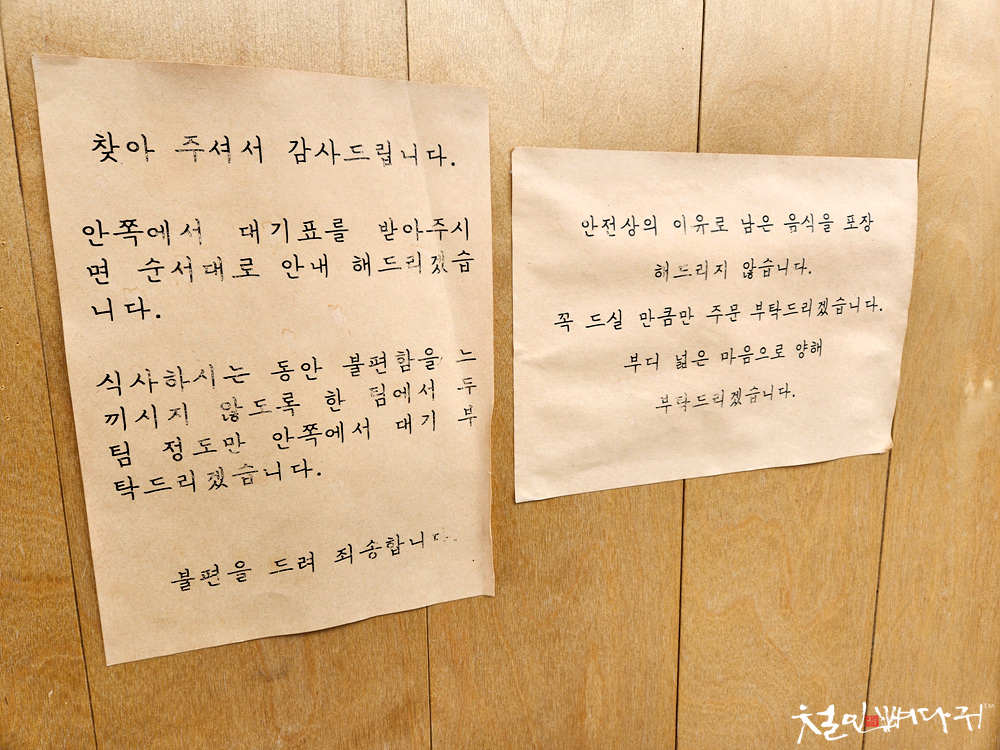 찾아 주셔서 감사드립니다.
안쪽에서 대기표를 받아주시
면 순서대로 안내 해드리겠습
니다.
식사하시는 동안 불편함을 느
끼시지 않도록 한 팀에서 두
팀 정도만 안쪽에서 대기 부
탁드리겠습니다.
불편을 드려 죄송합니다.
안전상의 이유로 남은 음식을 포장
해드리지 않습니다.
꼭 드실 만큼만 주문 부탁드리겠습니다.
부디 넓은 마음으로 양해
부탁드리겠습니다.
철인뼈다귀™